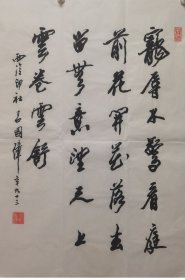 寵辱不驚看庭
前花開花落去
留無意望天上
雲卷雲舒
西泠印社吕國璋